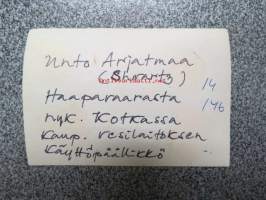 Unto Arjatmaa
(Shvartz)
Haaparnarasta
nyk. Kotkassa
kaup. vesilaitoksen
käyttöpäällikkö
14
/46